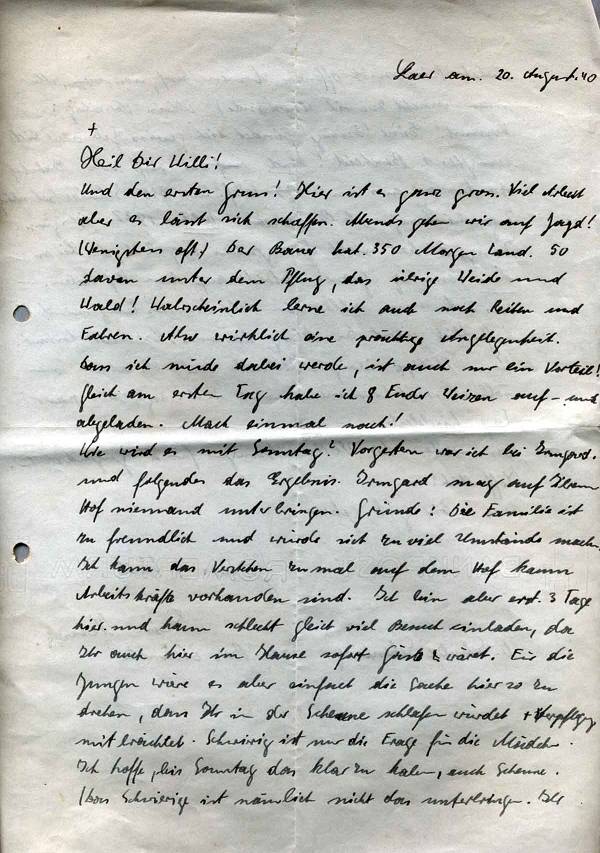 Laer am. 20. August. 40
+
Heil Dir Willi!
Und den ersten Gruss! Hier ist es ganz gross. Viel Arbeit
aber es lässt sich schaffen. Abends gehen wir auf Jagd!
(Wenigstens oft!) Der Bauer hat. 350 Morgen Land. 50
davon unter dem Pflug, das übrige Weide und
Wald! Wahrscheinlich lerne ich auch noch Reiten und
Fahren. Also wirklich eine prächtige Angelegenheit.
Dass ich müde dabei werde, ist auch nur ein Vorteil!
Gleich am ersten Tag habe ich 8 Fuder Weizen auf- und
abgeladen. Mach einmal nach!
Wie wird es mit Sonntag? Vorgestern war ich bei Irmgard.
und folgendes das Ergebnis. Irmgard mag auf Ihrem
Hof niemand unterbringen. Gründe: Die Familie ist
zu freundlich und würde sich zu viel Umstände mach.
Ich kann das Verstehen zumal auf dem Hof kaum
Arbeitskräfte vorhanden sind. Ich bin aber erst. 3 Tage
hier. und kann schlecht gleich viel Besuch einladen, da
Ihr auch hier im Hause sofort Gäste wäret. Für die
Jungen wäre es aber einfach die Sache hier so zu
drehen, dass Ihr in der Scheune schlafen würdet + Verpflegg
mitbrächtet. Schwierig ist nur die Frage für die Mädchen.
Ich hoffe, bis Sonntag das klar zu haben, auch Scheune.
(Das Schwierige ist nämlich nicht das unterbringen. Ihr